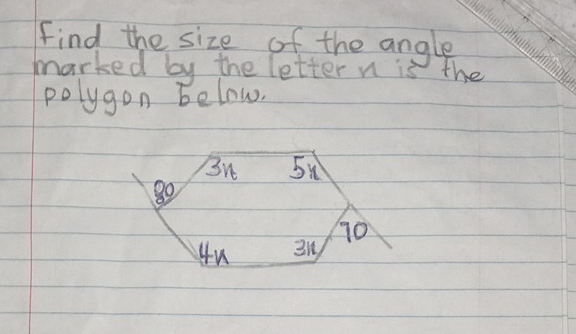 Find the size of the angle
marked by the letter n is the
polygon below.
3n 5n
80
70
4n 3n